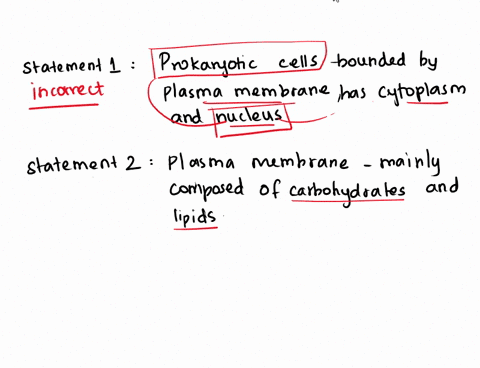 Statement 1 : Prokaryotic cells - bounded by
incorrect plasma membrane, has cytoplasm
and nucleus
Statement 2 : Plasma membrane - mainly
composed of carbohydrates and
lipids